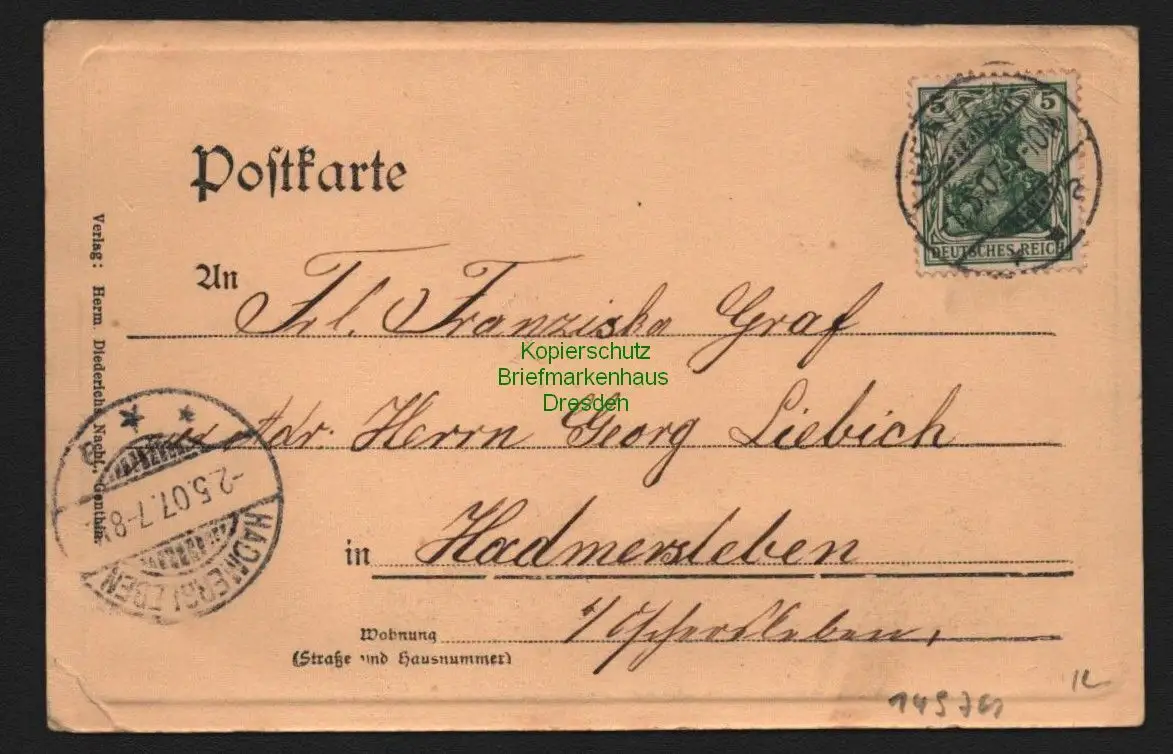 Postkarte
5 5
DEUTSCHES REICH
An Frl. Franziska Graf
Adr. Herrn Georg Liebich
in Hadmersleben
Wohnung
(Straße und Hausnummer)
b/Oschersleben,
Verlag: Herm. Diederichs Nachf., Genthin.
HADMERSLEBEN
-2.5.07.7-8
Kopierschutz
Briefmarkenhaus
Dresden